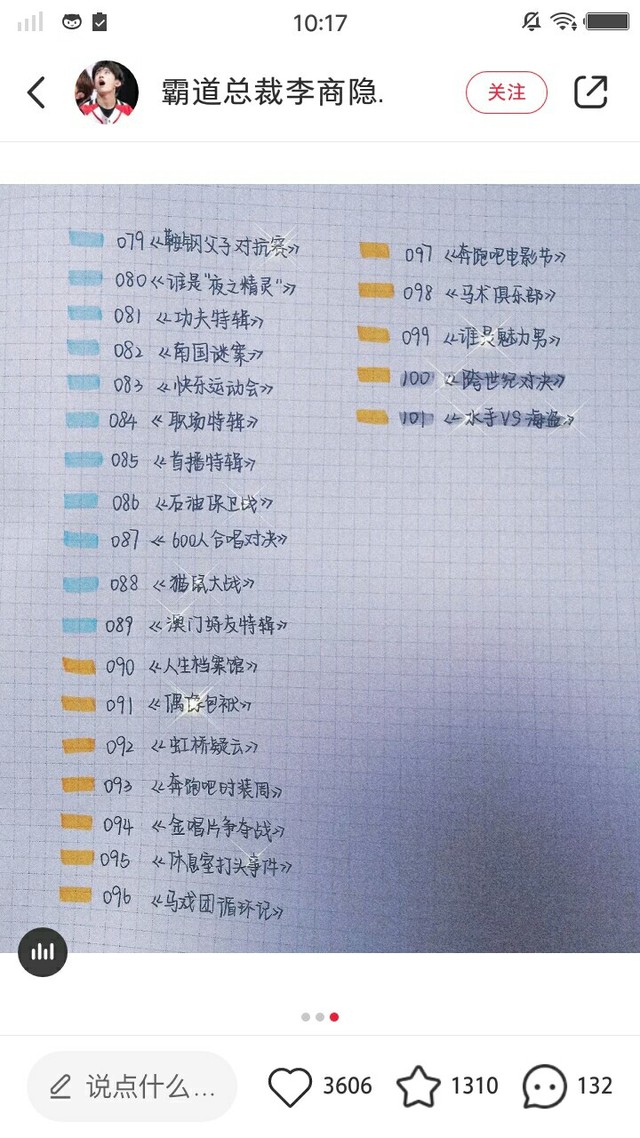 10:17
霸道总裁李商隐.
关注
079《鞍钢父子对抗赛》
080《谁是"夜之精灵"》
081《功夫特辑》
082《南国谜案》
083《快乐运动会》
084《职场特辑》
085《首播特辑》
086《石油保卫战》
087《600人合唱对决》
088《猫鼠大战》
089《澳门好友特辑》
090《人生档案馆》
091《偶像包袱》
092《虹桥疑云》
093《奔跑吧时装周》
094《金唱片争夺战》
095《休息室打头事件》
096《马戏团循环记》
097《奔跑吧电影节》
098《马术俱乐部》
099《谁是魅力男》
100《跨世纪对决》
101《水手VS海盗》
说点什么...
3606
1310
132